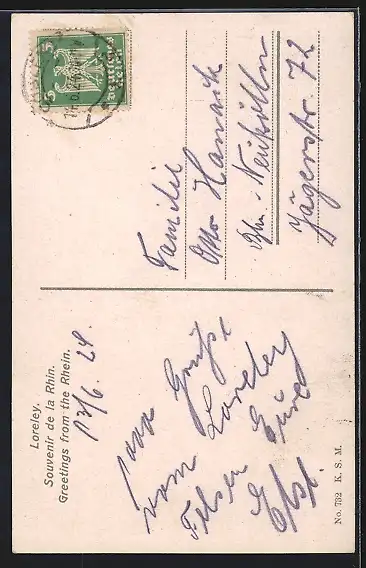 Loreley.
Souvenir de la Rhin.
Greetings from the Rhein.
13/6. 24.
Gruß
vom Loreley
Felsen Eure
No. 732 K. S. M.
5 5
Deutsches Reich
Familie
Otto Hanack
Bln.-Neukölln
Jägerstr. 72